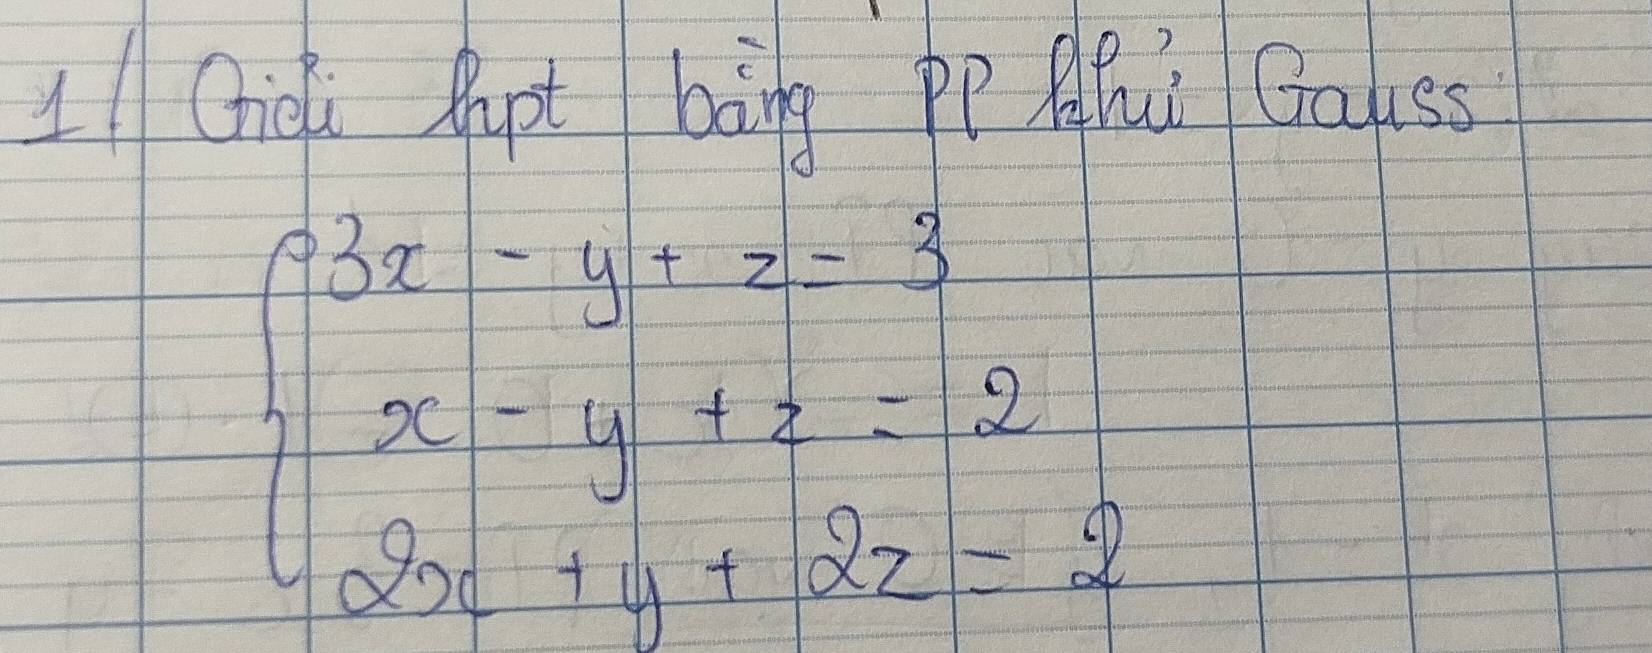 1/ Giải hpt bằng PP khử Gauss:
3x - y + z = 3
x - y + z = 2
2x + y + 2z = 2